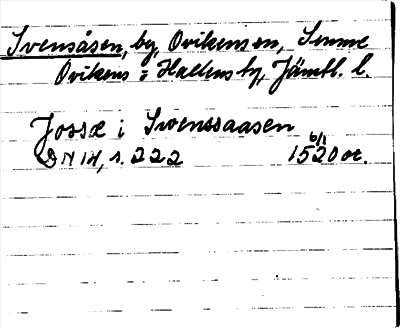 Svensåsen, by, Ovikens sn, Sunne
Ovikens o Hallens tg, Jämtl. l.
Jossæ i Swenssaasen
6/1
DN 14, s. 222 1520 or.